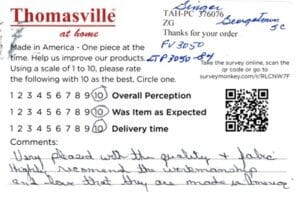 Thomasville
at home
Singer
TAH-PC 376076
ZG
Georgetown
SC
Thanks for your order
Made in America - One piece at the
time. Help us improve our products.
Using a scale of 1 to 10, please rate
the following with 10 as the best, Circle one.
FV3050
LTP3050-84
Take the survey online, scan the
qr code or go to
surveymonkey.com/r/RLCNW7F
1 2 3 4 5 6 7 8 9 10 Overall Perception
1 2 3 4 5 6 7 8 9 10 Was Item as Expected
1 2 3 4 5 6 7 8 9 10 Delivery time
Comments:
Very pleased with the quality & fabric
Highly recomend the workmanship
and love that they are made in America